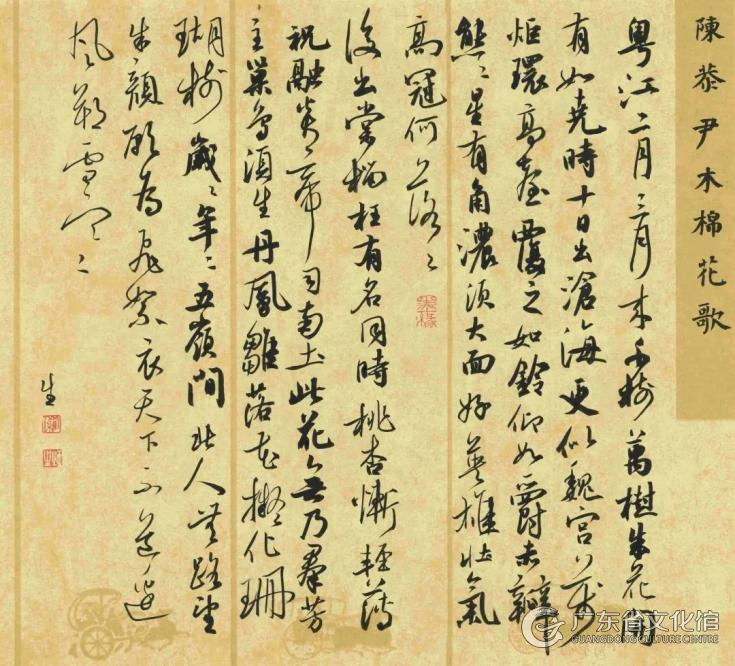 陳恭尹木棉花歌
粵江二月三月来千树萬樹朱花開
有如堯時十日出滄海更似魏宮萬
炬環高臺覆之如鈴仰如爵赤瓣
熊〻星有角濃須大面好英雄壯氣
高冠何落〻
後出棠榴枉有名同時桃杏慚輕薄
祝融炎帝司南土此花無乃羣芳
主巢鳥須生丹鳳雛落花擬化珊
瑚树歲〻年〻五嶺間北人無路望
朱顏願為飛絮衣天下不道邊
風朔雪寒
生
广东省文化馆
GUANGDONG CULTURE CENTRE